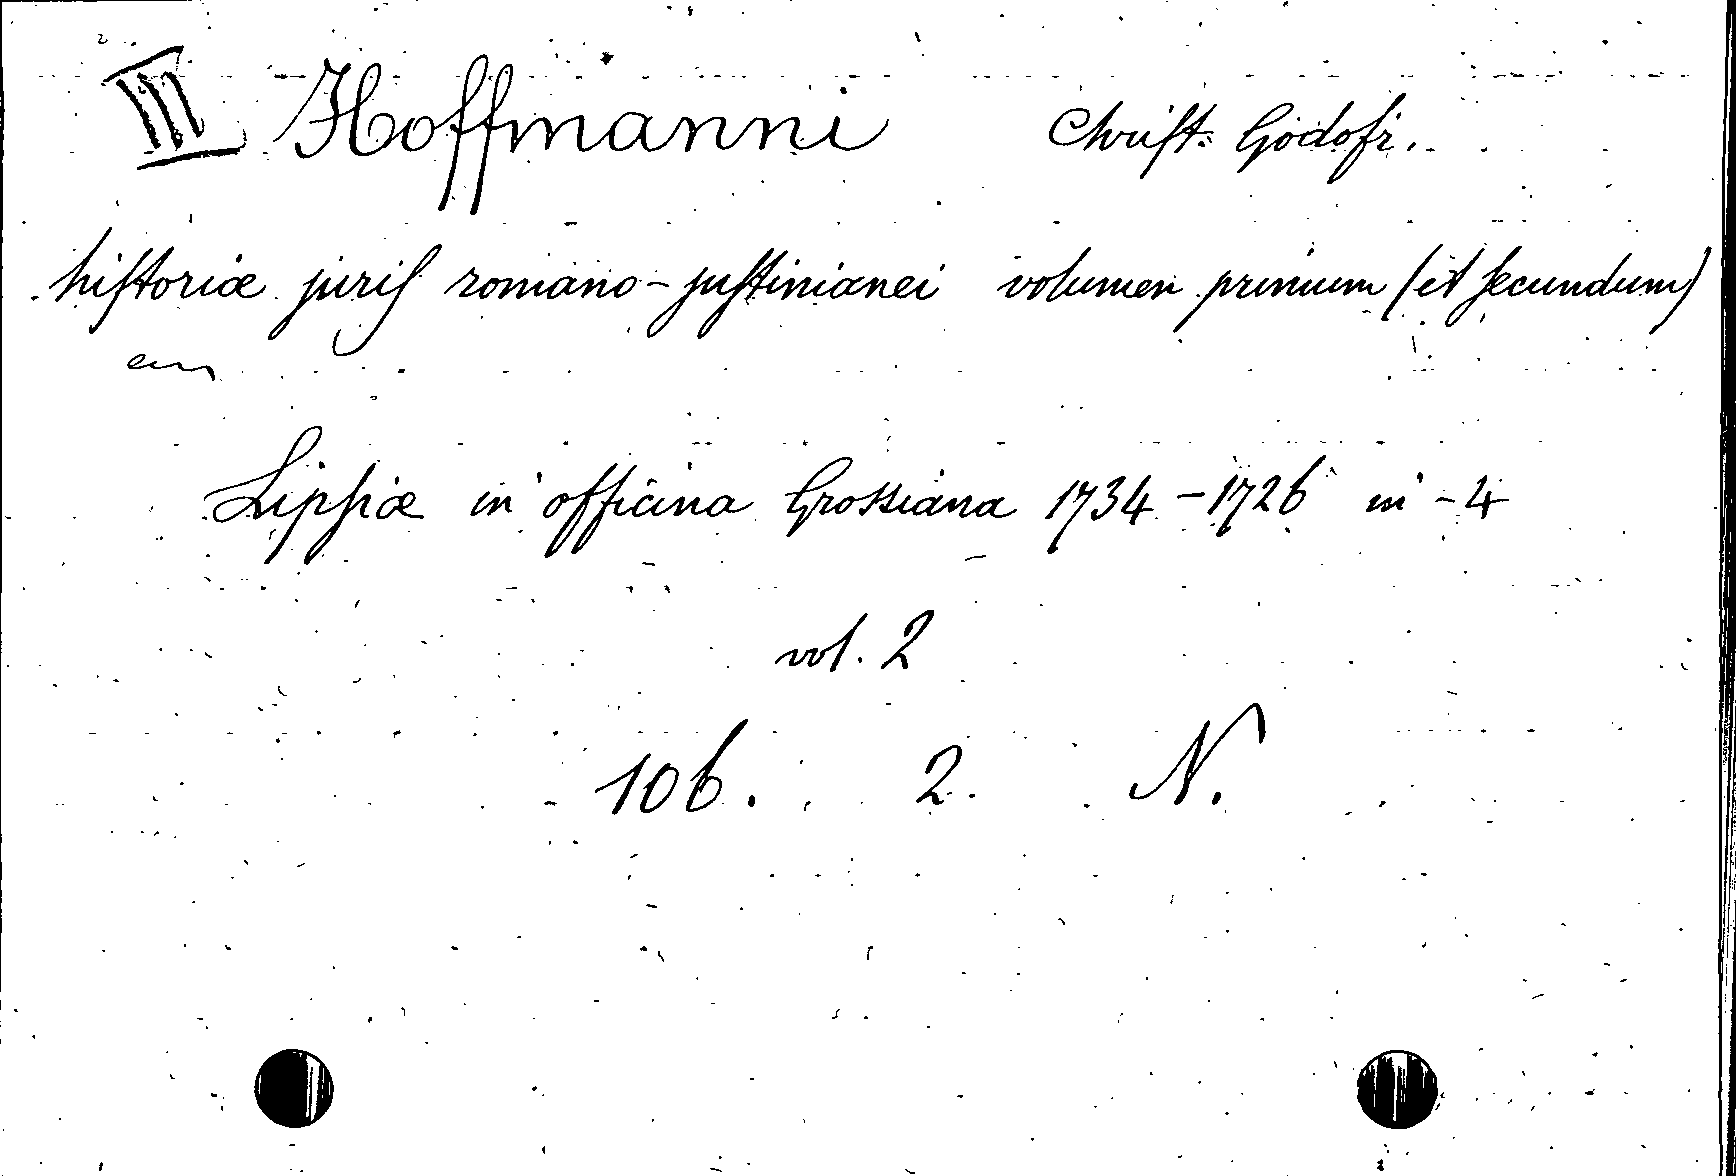 III Hoffmanni Christ. Godofr.
historiæ juris romano-justinianei volumen primum (et secundum)
Lipsiæ in officina Grossiana 1734-1726 in-4
vol. 2
106. 2. N.